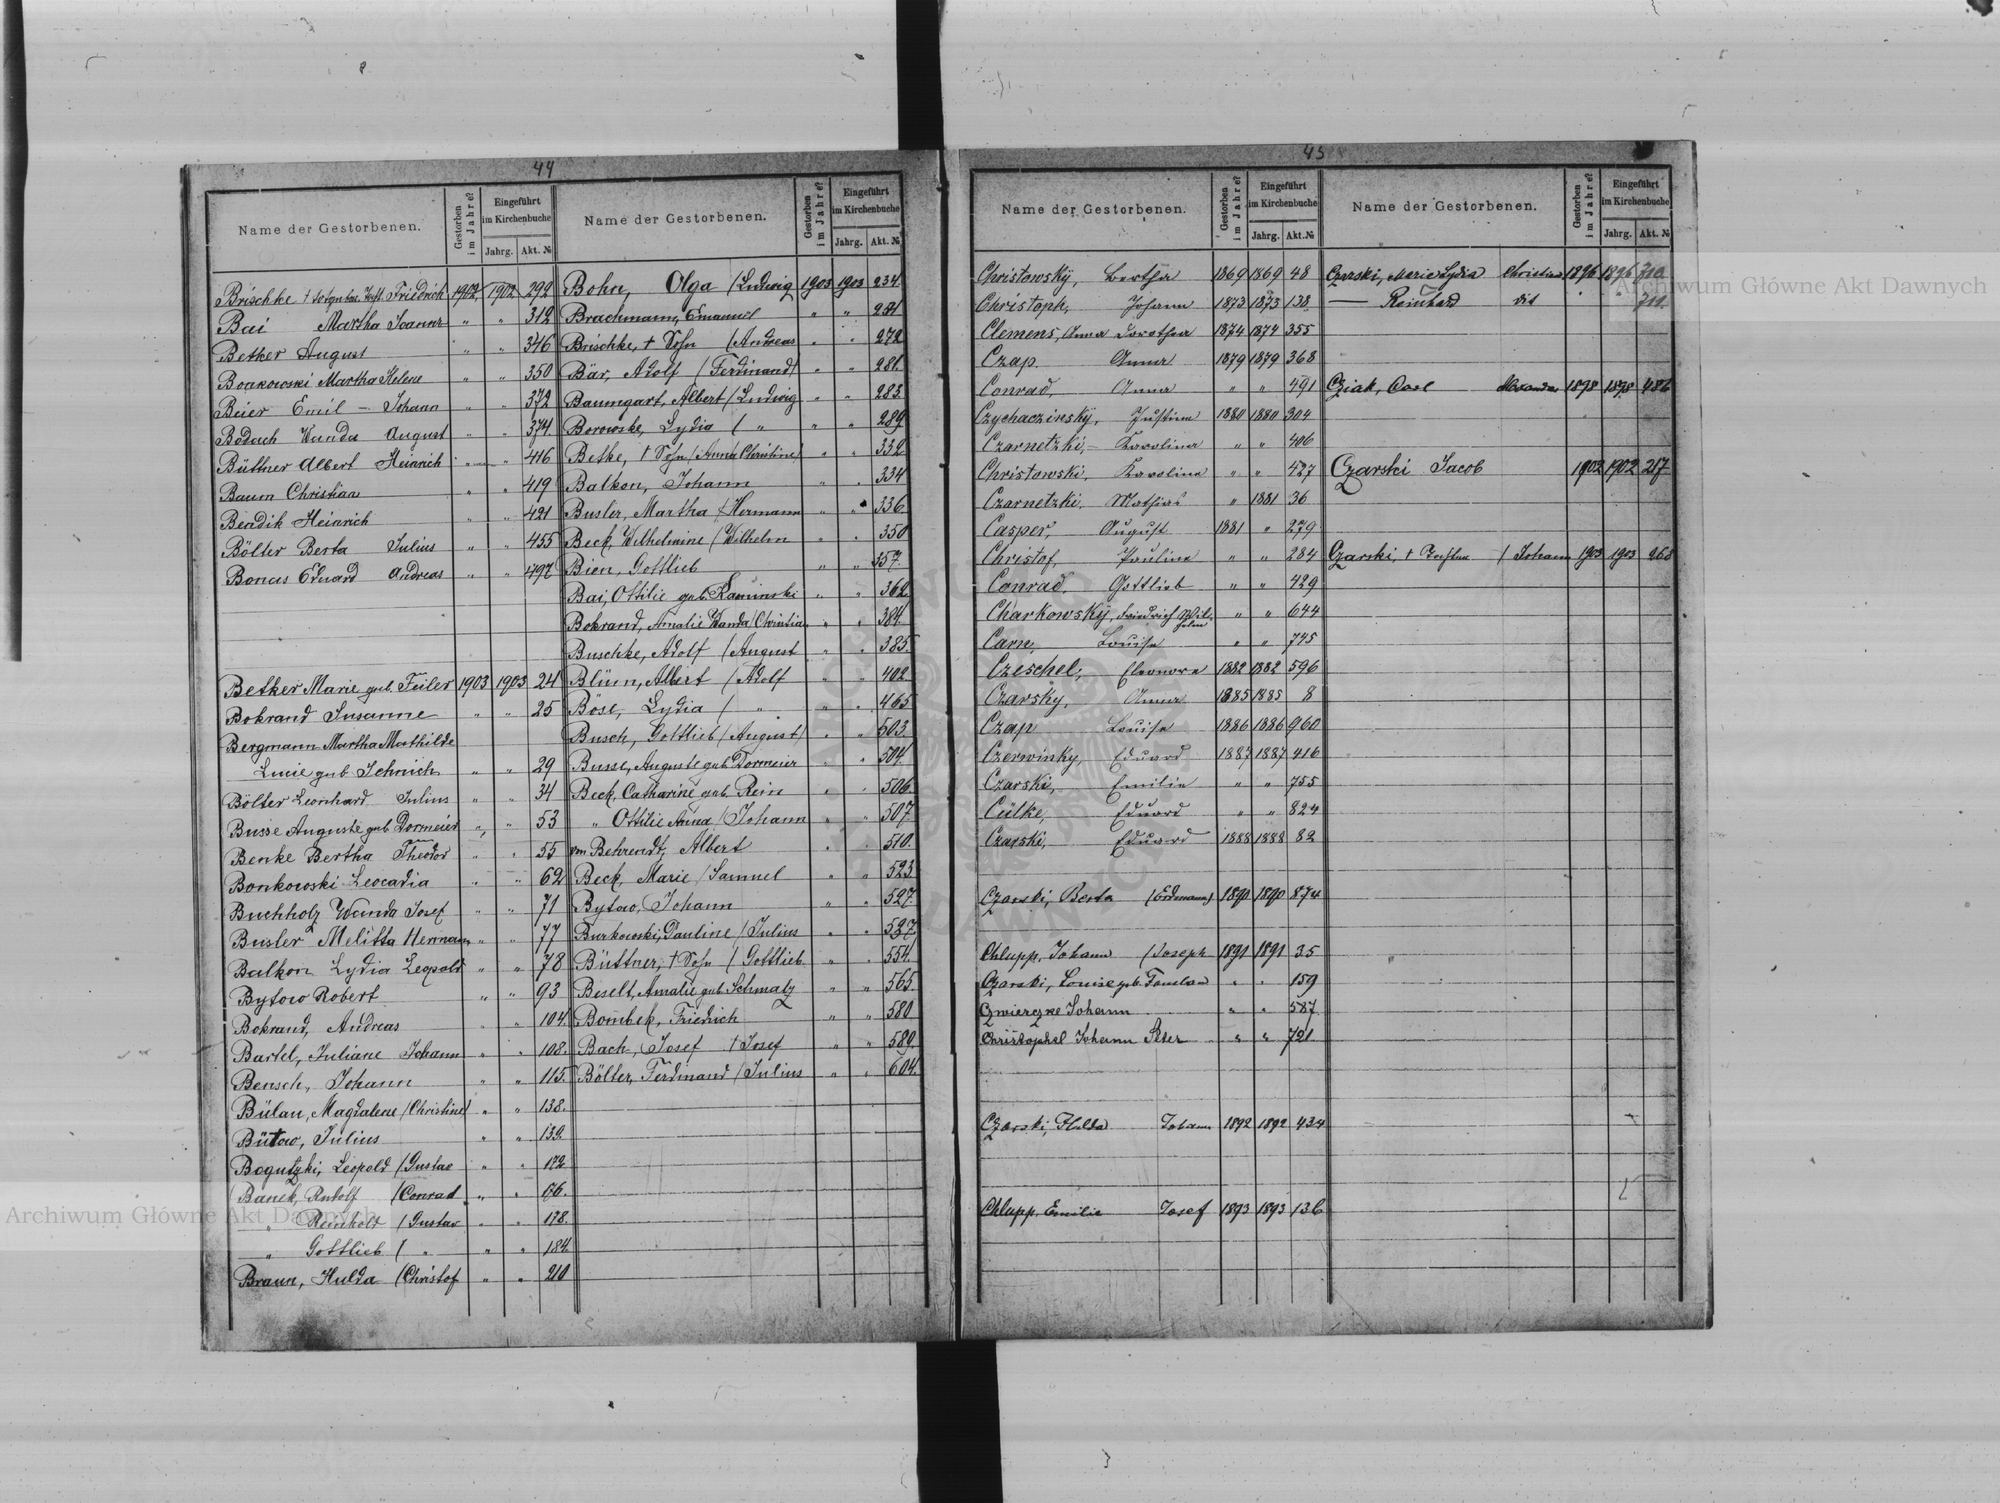 44
Name der Gestorbenen. Gestorben im Jahre? Eingeführt im Kirchenbuche Jahrg. Akt. №
Brischke Friedrich 1902 1902 292
Bai Martha Joanna " " 312
Betker August " " 346
Martha Helene " " 350
Beier Emil – Johann " " 372
Bodach Wanda August " " 374
Büttner Albert Heinrich " " 416
Baum Christian " " 419
Bendik Heinrich " " 421
Bölter Berta Julius " " 455
Bonas Eduard Andreas " " 492
Betker Marie geb. Feiler 1903 1903 24
Bokrand Susanne " " 25
Bergmann Martha Mathilde
Lucie geb Jehnich " " 29
Bölter Leonhard Julius " " 34
Busse Auguste geb Dormeier " " 53
Benke Bertha Theodor " " 55
Bonkowski Leocadia " " 62
Buchholz Wanda Josef " " 71
Busler Melitta Hermann " " 77
Balkon Lydia Leopold " " 78
Bytow Robert " " 93
Bokrand, Andreas " " 104
Bartel, Juliane Johann " " 108.
Bensch, Johann " " 115.
Bülau, Magdalene (Christine) " " 138.
Bütow, Julius " " 139.
Bogutzki, Leopold (Gustav " " 172
Banek, Rudolf (Conrad " "
" Reinhold (Gustav " " 178.
" Gottlieb ( " " " 184
Braun, Hulda (Christof " " 210
Name der Gestorbenen. Gestorben im Jahre? Eingeführt im Kirchenbuche Jahrg. Akt. №
Bohn, Olga (Ludwig 1903 1903 234
Brachmann, Emanuel " "
Brischke, † Sohn (Andreas " " 272
Bär, Adolf (Ferdinand) " " 281.
Baumgart, Albert (Ludwig " " 283
Borowske, Lydia ( " " " 289
Betke, † Sohn (Anna Christine) " " 332
Balkon, Johann " " 334
Busler, Martha (Hermann " " 336
Beck, Wilhelmine (Wilhelm " " 350
Bien, Gottlieb " " 357.
Bai, Ottilie geb. Kaminski " " 362
Bokrand, Amalie Wanda (Christian " " 384
Buschke, Adolf (August " " 385.
Blünn, Albert (Adolf " " 402
Böse, Lydia ( " " " 465
Busch, Gottlieb (August) " " 503
Busse, Auguste geb Dormeier " " 504
Beck, Catharine geb Rein " " 506
" Ottilie Anna (Johann " " 507
von Behrendt, Albert " " 510.
Beck, Marie (Samuel " " 523
Bytow, Johann " " 527
Burkowski, Pauline (Julius " "
Büttner, † Sohn (Gottlieb " " 554
Beselt, Amalie geb Schmalz " " 565
Bombek, Friedrich " " 580
Bach, Josef † Josef " " 589.
Bölter, Ferdinand (Julius " " 604
45
Name der Gestorbenen. Gestorben im Jahre? Eingeführt im Kirchenbuche Jahrg. Akt. №
Christowskÿ, Bertha 1869 1869 48
Christoph, Johann 1873 1873 138.
Clemens, Anna Dorothea 1874 1874 355
Czap Anna 1879 1879 368
Conrad, Anna " " 491
Justine 1880 1880 304
Czarnetzki, – Karolina " " 406
Christowski, Karolina " " 427
Czarnetzki, Mathias " 1881 36
Casper, August 1881 " 279
Christof, Pauline " " 284
Conrad, Gottlieb " " 429
Charkowskÿ, Friedrich Wilhelm " " 644
Louise " " 745
Czeschel, Eleonore 1882 1882 596
Czarsky, Anna 1885 1885 8
Czap Louise 1886 1886 960
Czerwinky, Eduard 1887 1887 416
Czarski, Emilie " " 755
Cülke, Eduard " " 824
Czarski, Eduard 1888 1888 82
Czarski, Berta (Erdmann) 1890 1890 874
Chlupp, Johann (Joseph 1891 1891 35
Czarski, Louise geb. " " 159
Johann " " 587
Christophel Johann Peter " " 721
Czarski, Hulda Johann 1892 1892 434
Chlupp, Emilie Josef 1893 1893 136
Name der Gestorbenen. Gestorben im Jahre? Eingeführt im Kirchenbuche Jahrg. Akt. №
Czarski, Marie Lydia Christian 1896 1896 710
— Reinhard dit " " 711.
Cziak, Carl Alexander 1898 1898 486
Czarski Jacob 1902 1902 217
Czarski, † Tochter (Johann 1903 1903 268
Archiwum Główne Akt Dawnych
Archiwum Główne Akt Dawnych